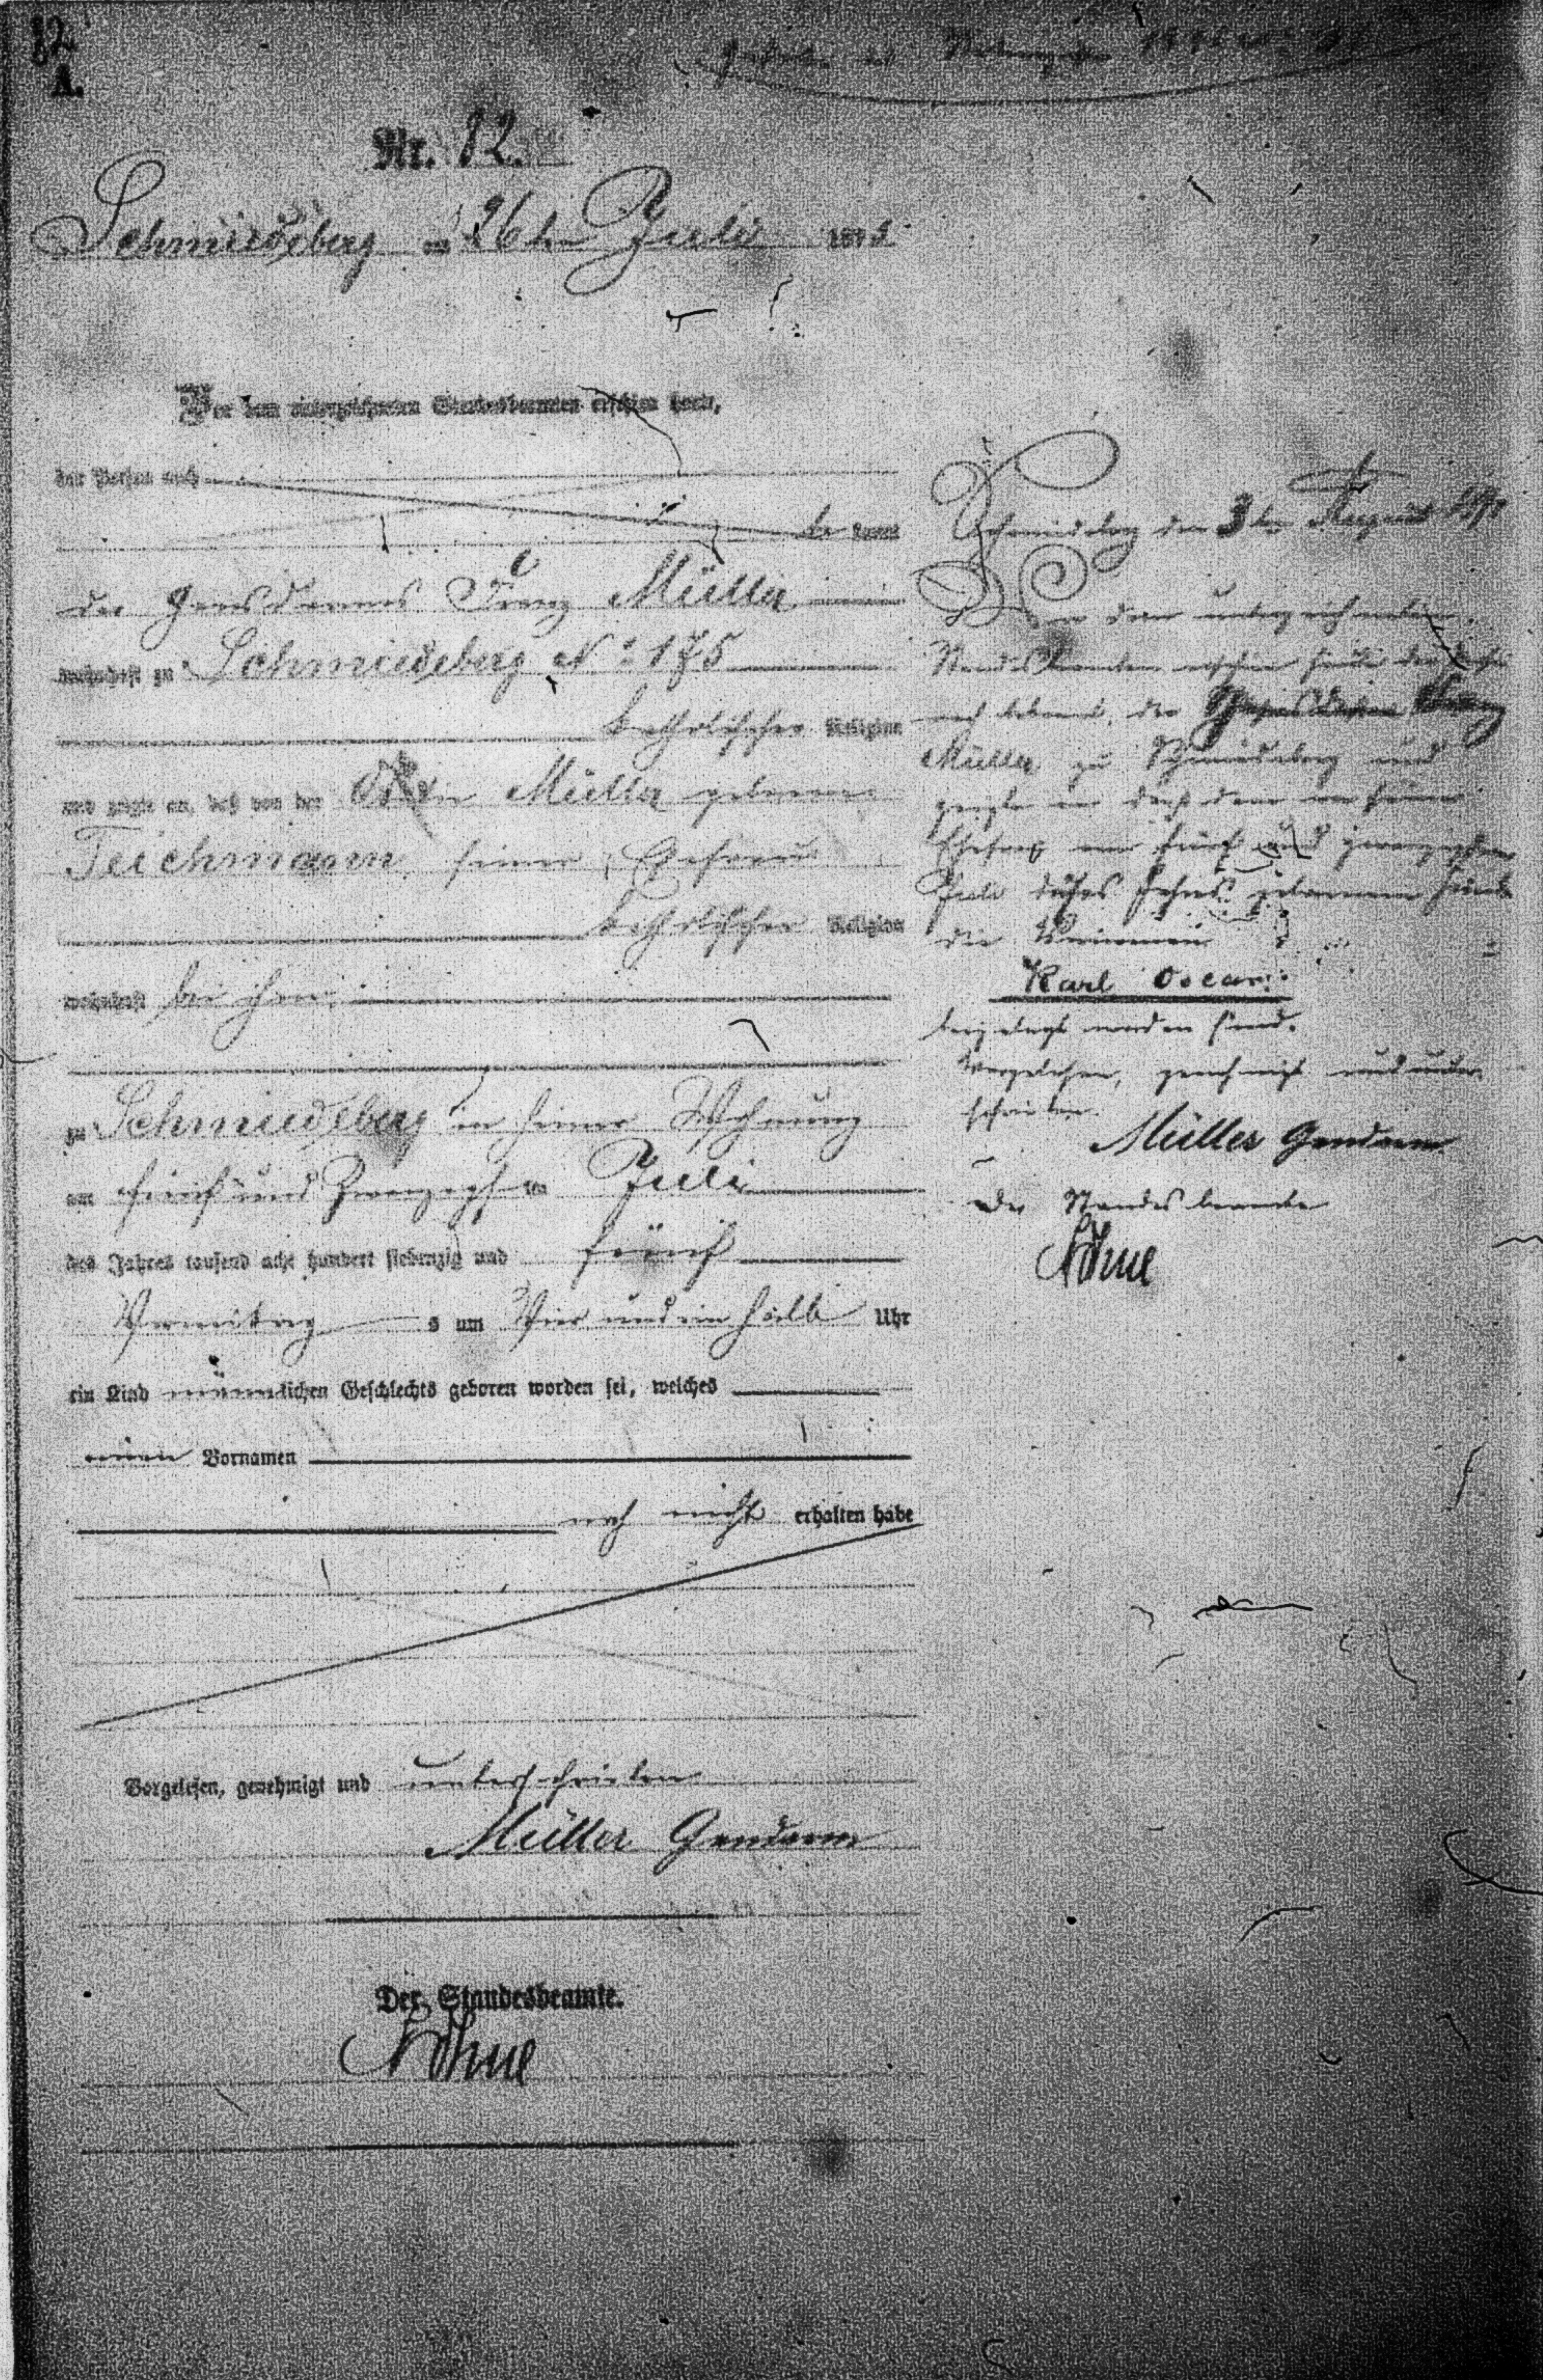 82.
A.
Nr. 82.
Schmiedeberg am 26ten Juli 1875
Vor dem unterzeichneten Standesbeamten erschien heute,
der Person nach
kannt
der Gensdarm Franz Müller
wohnhaft zu Schmiedeberg No 175
katholischer Religion
und zeigte an, daß von der Müller geborene
Teichmann, seiner Ehefrau
katholischer Religion
wohnhaft bei ihm
zu Schmiedeberg in seiner Wohnung
am fünf und zwanzigsten Juli
des Jahres tausend acht hundert siebenzig und fünf
Vormittag s um Vier und ein halb Uhr
ein Kind männlichen Geschlechts geboren worden sei, welches
einen Vornamen
noch nicht erhalten habe
Vorgelesen, genehmigt und unterschrieben
Müller Gendarm
Der Standesbeamte.
Schmiedeberg den 3ten August
Vor dem unterzeichneten
Standesbeamten erschien heute der Person
nach bekannt, der Gensdarm Franz
Müller zu Schmiedeberg und
zeigte an daß dem von seiner
Ehefrau am fünf und zwanzigsten
Juli dieses Jahres geborenen Kinde
die Vornamen
Karl Oscar
beigelegt worden sind.
Vorgelesen, genehmigt und unter-
schrieben.
Müller Gendarm
Der Standesbeamte